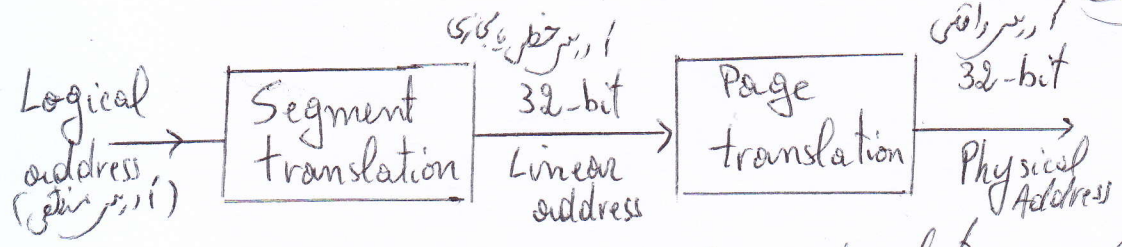 Logical
address
(آدرس منطقی)
Segment
translation
آدرس خطی یا مجازی
32-bit
Linear
address
Page
translation
آدرس واقعی
32-bit
Physical
Address